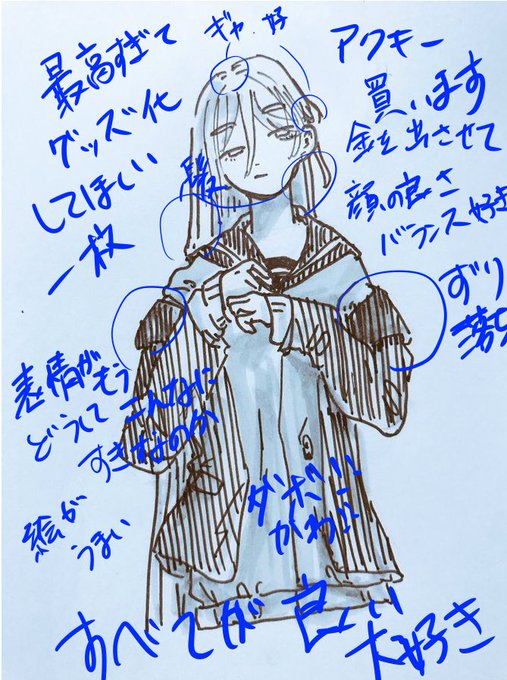 最高すぎて
グッズ化
してほしい
一枚
ギャ.好
アクキー
買います
金を出させて
顔の良さ
バランス好き
髪
ずり
落ち
表情がもう
どうしてこんなに
すきなのか
絵が
うまい
ダボ
かわ
すべてが良い
大好き